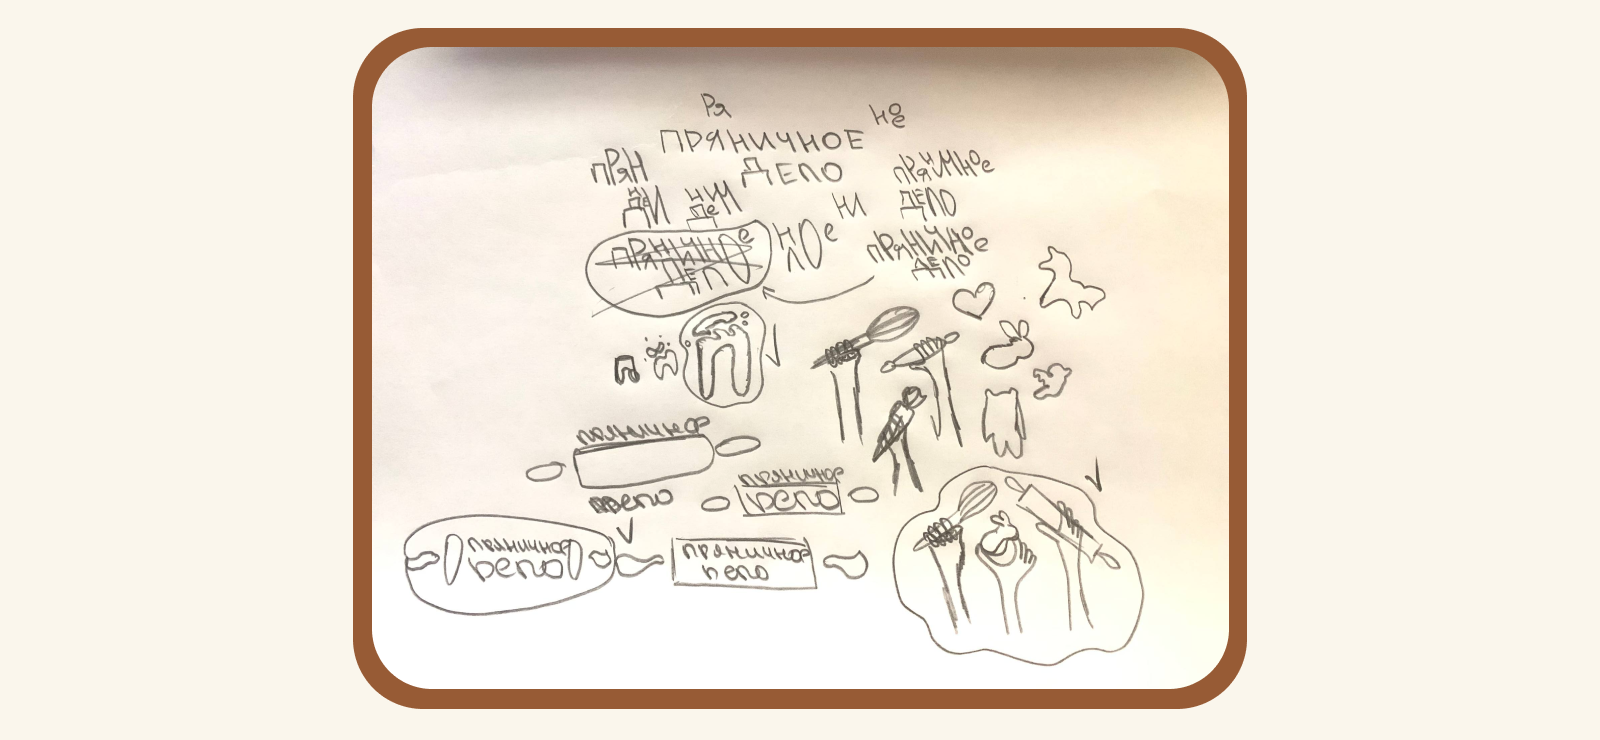 Ря
но
е
ПРЯНИЧНОЕ
ДЕЛО
ПРЯН
ПРЯНИЧНОЕ
ДЕЛО
НИ
ПРЯНИЧНОЕ
ДЕЛО
НОе
Л
ПРЯНИЧНОЕ
ДЕЛО
П
пряничное
дело
пряничное
дело
пряничное
дело
пряничное
дело